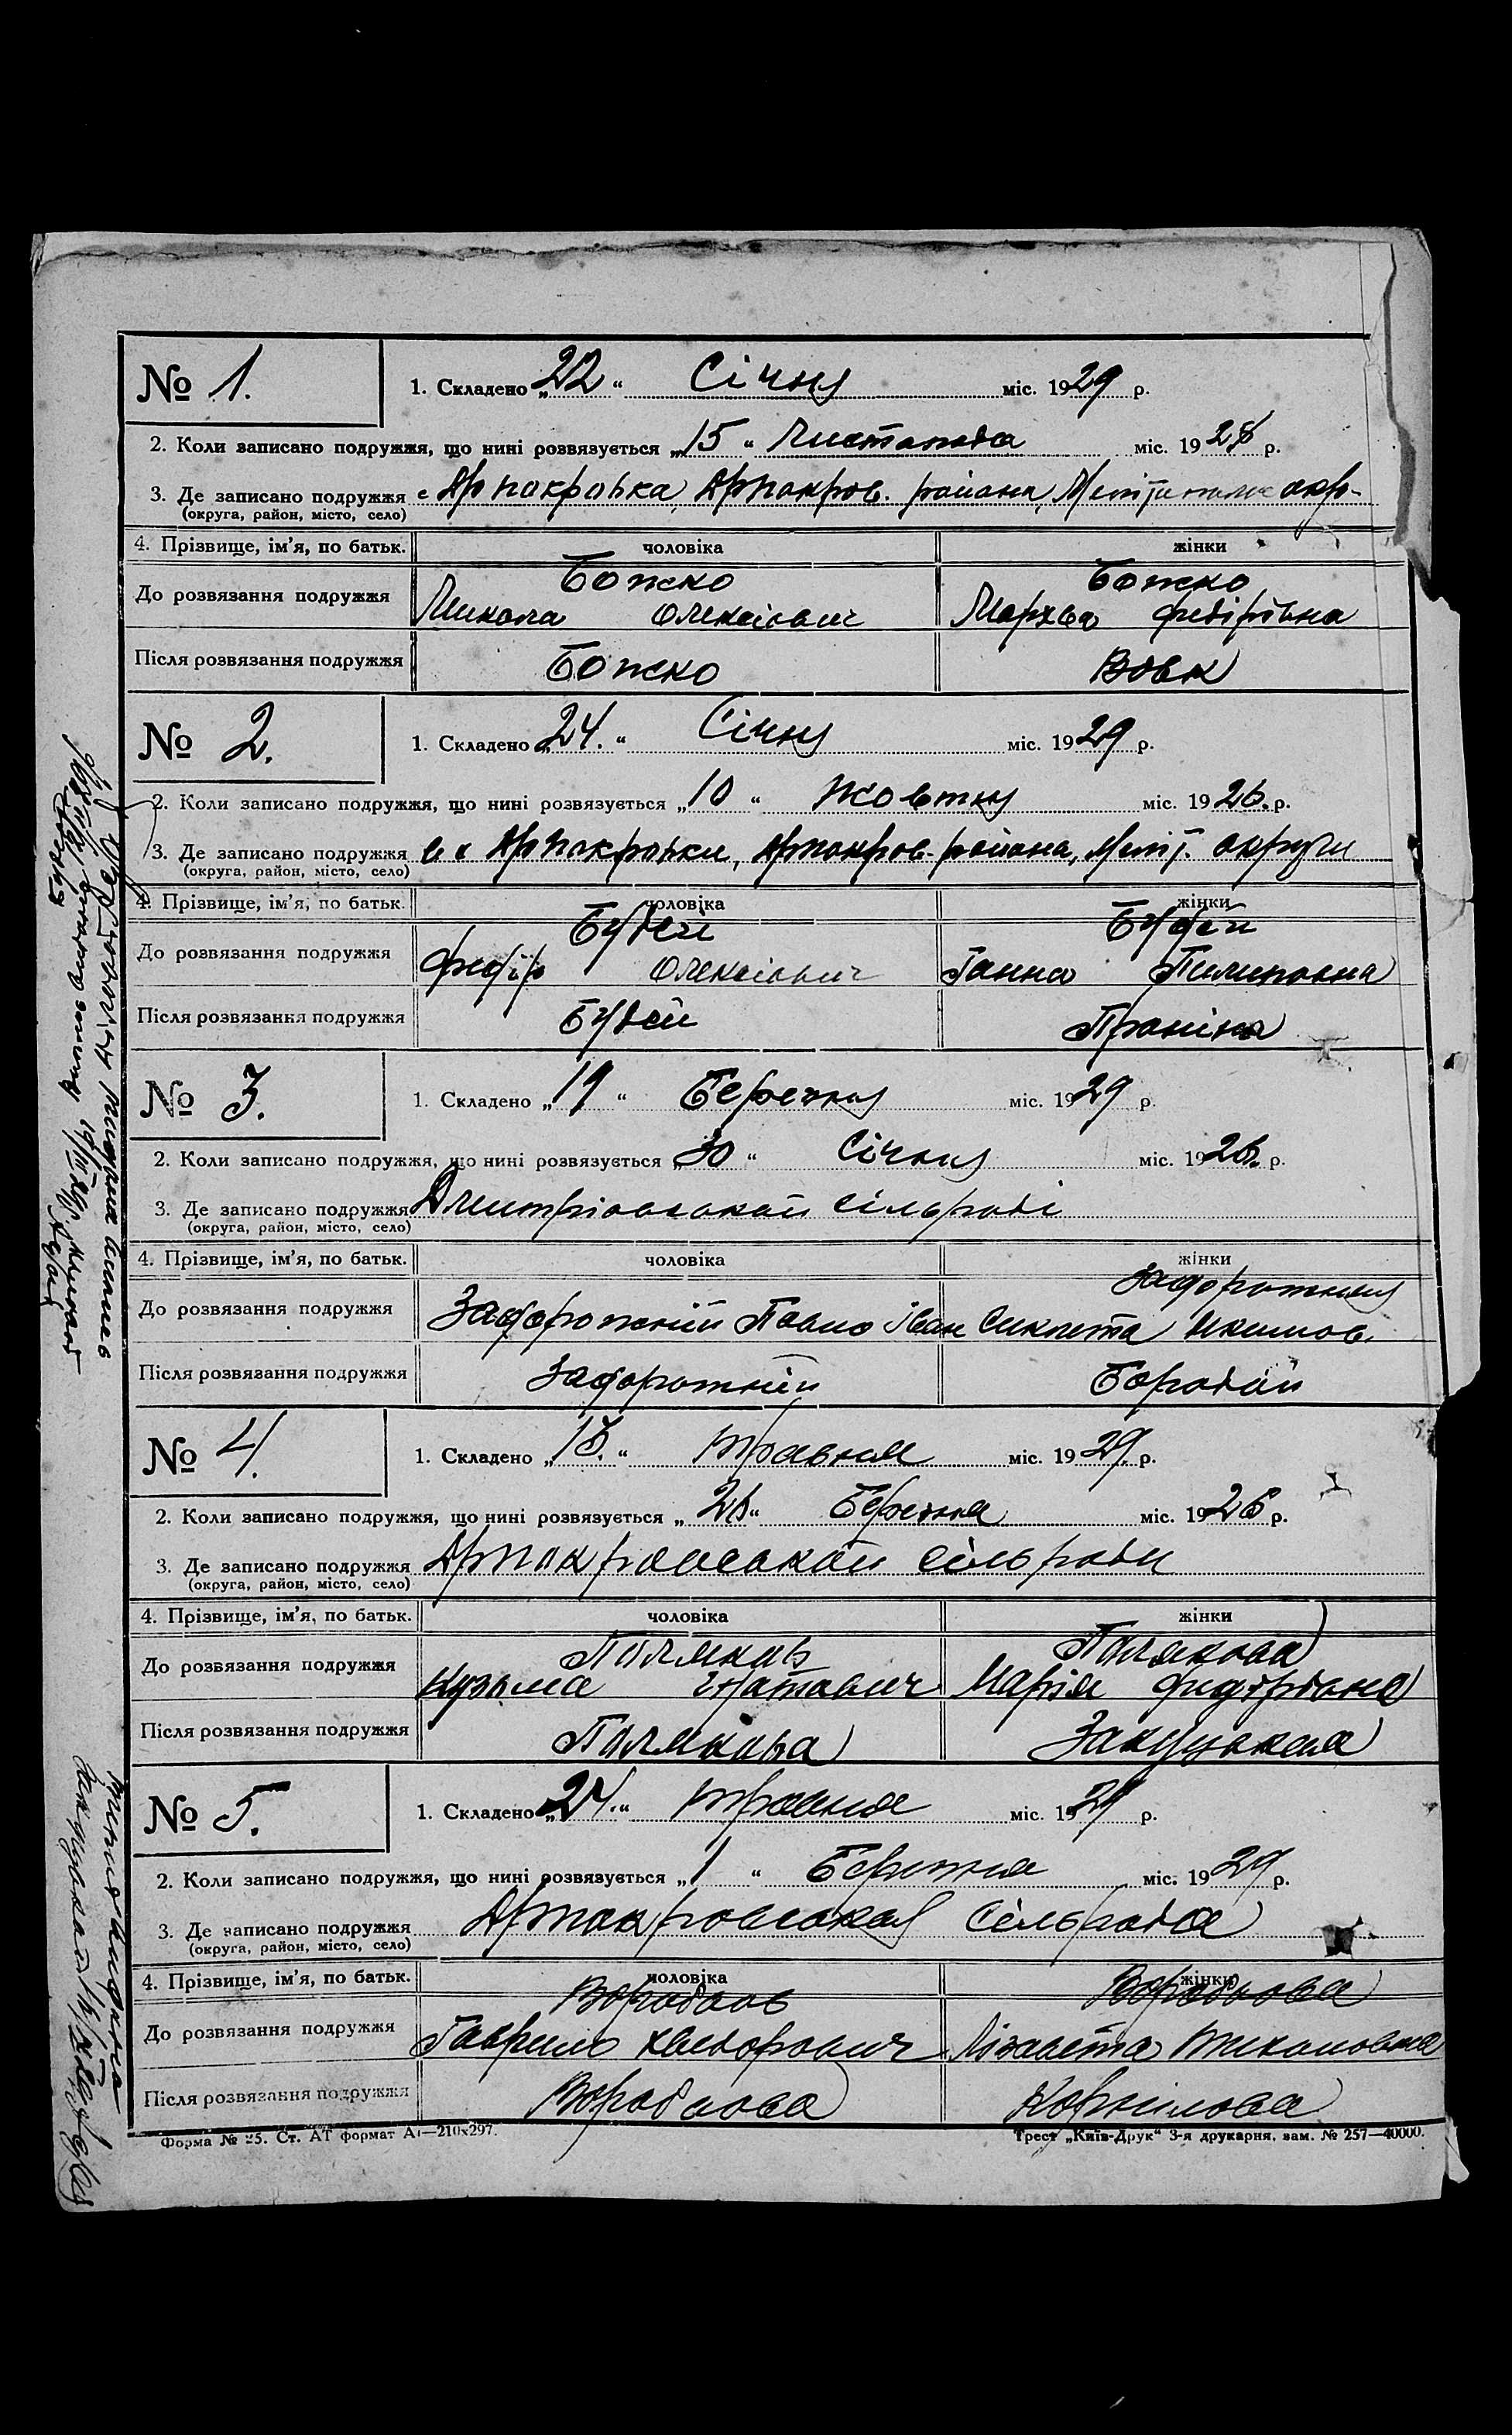 № 1. 1. Складено „22“ Січня міс. 1929 р.
2. Коли записано подружжя, що нині розвязується „15“ Листопада міс. 1928 р.
3. Де записано подружжя с Ярпокровка, Ярпокров. района, окр.
(округа, район, місто, село)
4. Прізвище, ім’я, по батьк. чоловіка жінки
Божко Божко
До розвязання подружжя Микола Олексієвич Мархва Федірівна
Після розвязання подружжя Божко Вовк
№ 2. 1. Складено „24.“ Січня міс. 1929 р.
2. Коли записано подружжя, що нині розвязується „10“ Жовтня міс. 1926. р.
3. Де записано подружжя в с Ярпокровки, Ярпокров. района, Меліт. округи
(округа, район, місто, село)
4. Прізвище, ім’я, по батьк. чоловіка жінки
Будей Будей
До розвязання подружжя Федір Олексієвич Ганна Пилиповна
Після розвязання подружжя Будей Проніна
№ 3. 1. Складено „19“ Березня міс. 1929 р.
2. Коли записано подружжя, що нині розвязується „30“ Січня міс. 1926. р.
3. Де записано подружжя Дмитріовской сільраді
(округа, район, місто, село)
4. Прізвище, ім’я, по батьк. чоловіка жінки
Задорожния
До розвязання подружжя Задорожній Павло Іван Секлета Якимов.
Після розвязання подружжя Задорожній Бородай
№ 4. 1. Складено „15.“ травня міс. 1929. р.
2. Коли записано подружжя, що нині розвязується Березня міс. 1926 р.
3. Де записано подружжя Ярпокровской сільради
(округа, район, місто, село)
4. Прізвище, ім’я, по батьк. чоловіка жінки
Поляков Полякова
До розвязання подружжя Кузьма Гнатович Марія Федоровна
Після розвязання подружжя Полякова Закуцькая
№ 5. 1. Складено „24.“ травня міс. 1929 р.
2. Коли записано подружжя, що нині розвязується „1“ Березня міс. 1929 р.
3. Де записано подружжя Ярпокровская Сільрада
(округа, район, місто, село)
4. Прізвище, ім’я, по батьк. чоловіка жінки
До розвязання подружжя Гаврило Хведорович Лізавета Тихоновна
Після розвязання подружжя Корнілова
Форма № 25. Ст. АТ формат А1—210х297. Трест „Київ-Друк“ 3-я друкарня, зам. № 257—40000.